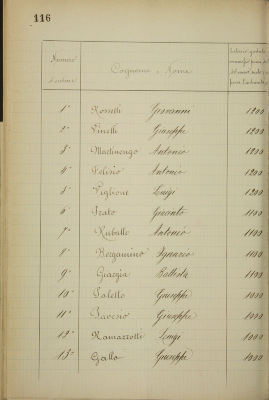 116
Numero d'ordine
Cognome e Nome
1° Rossetti Giovanni 1200
2° Vinelli Giuseppe 1200
3° Martinengo Antonio 1200
4° Felisio Antonio 1200
5° Viglione Luigi 1200
6° Prato Giacinto 1100
7° Riballo Antonio 1100
8° Bergamino Ignazio 1100
9° Giorgia 1000
10° Paletto Giuseppe 1000
11° Saveno Giuseppe 1000
12° Ramazzotti Luigi 1000
13° Gallo Giuseppe 1000